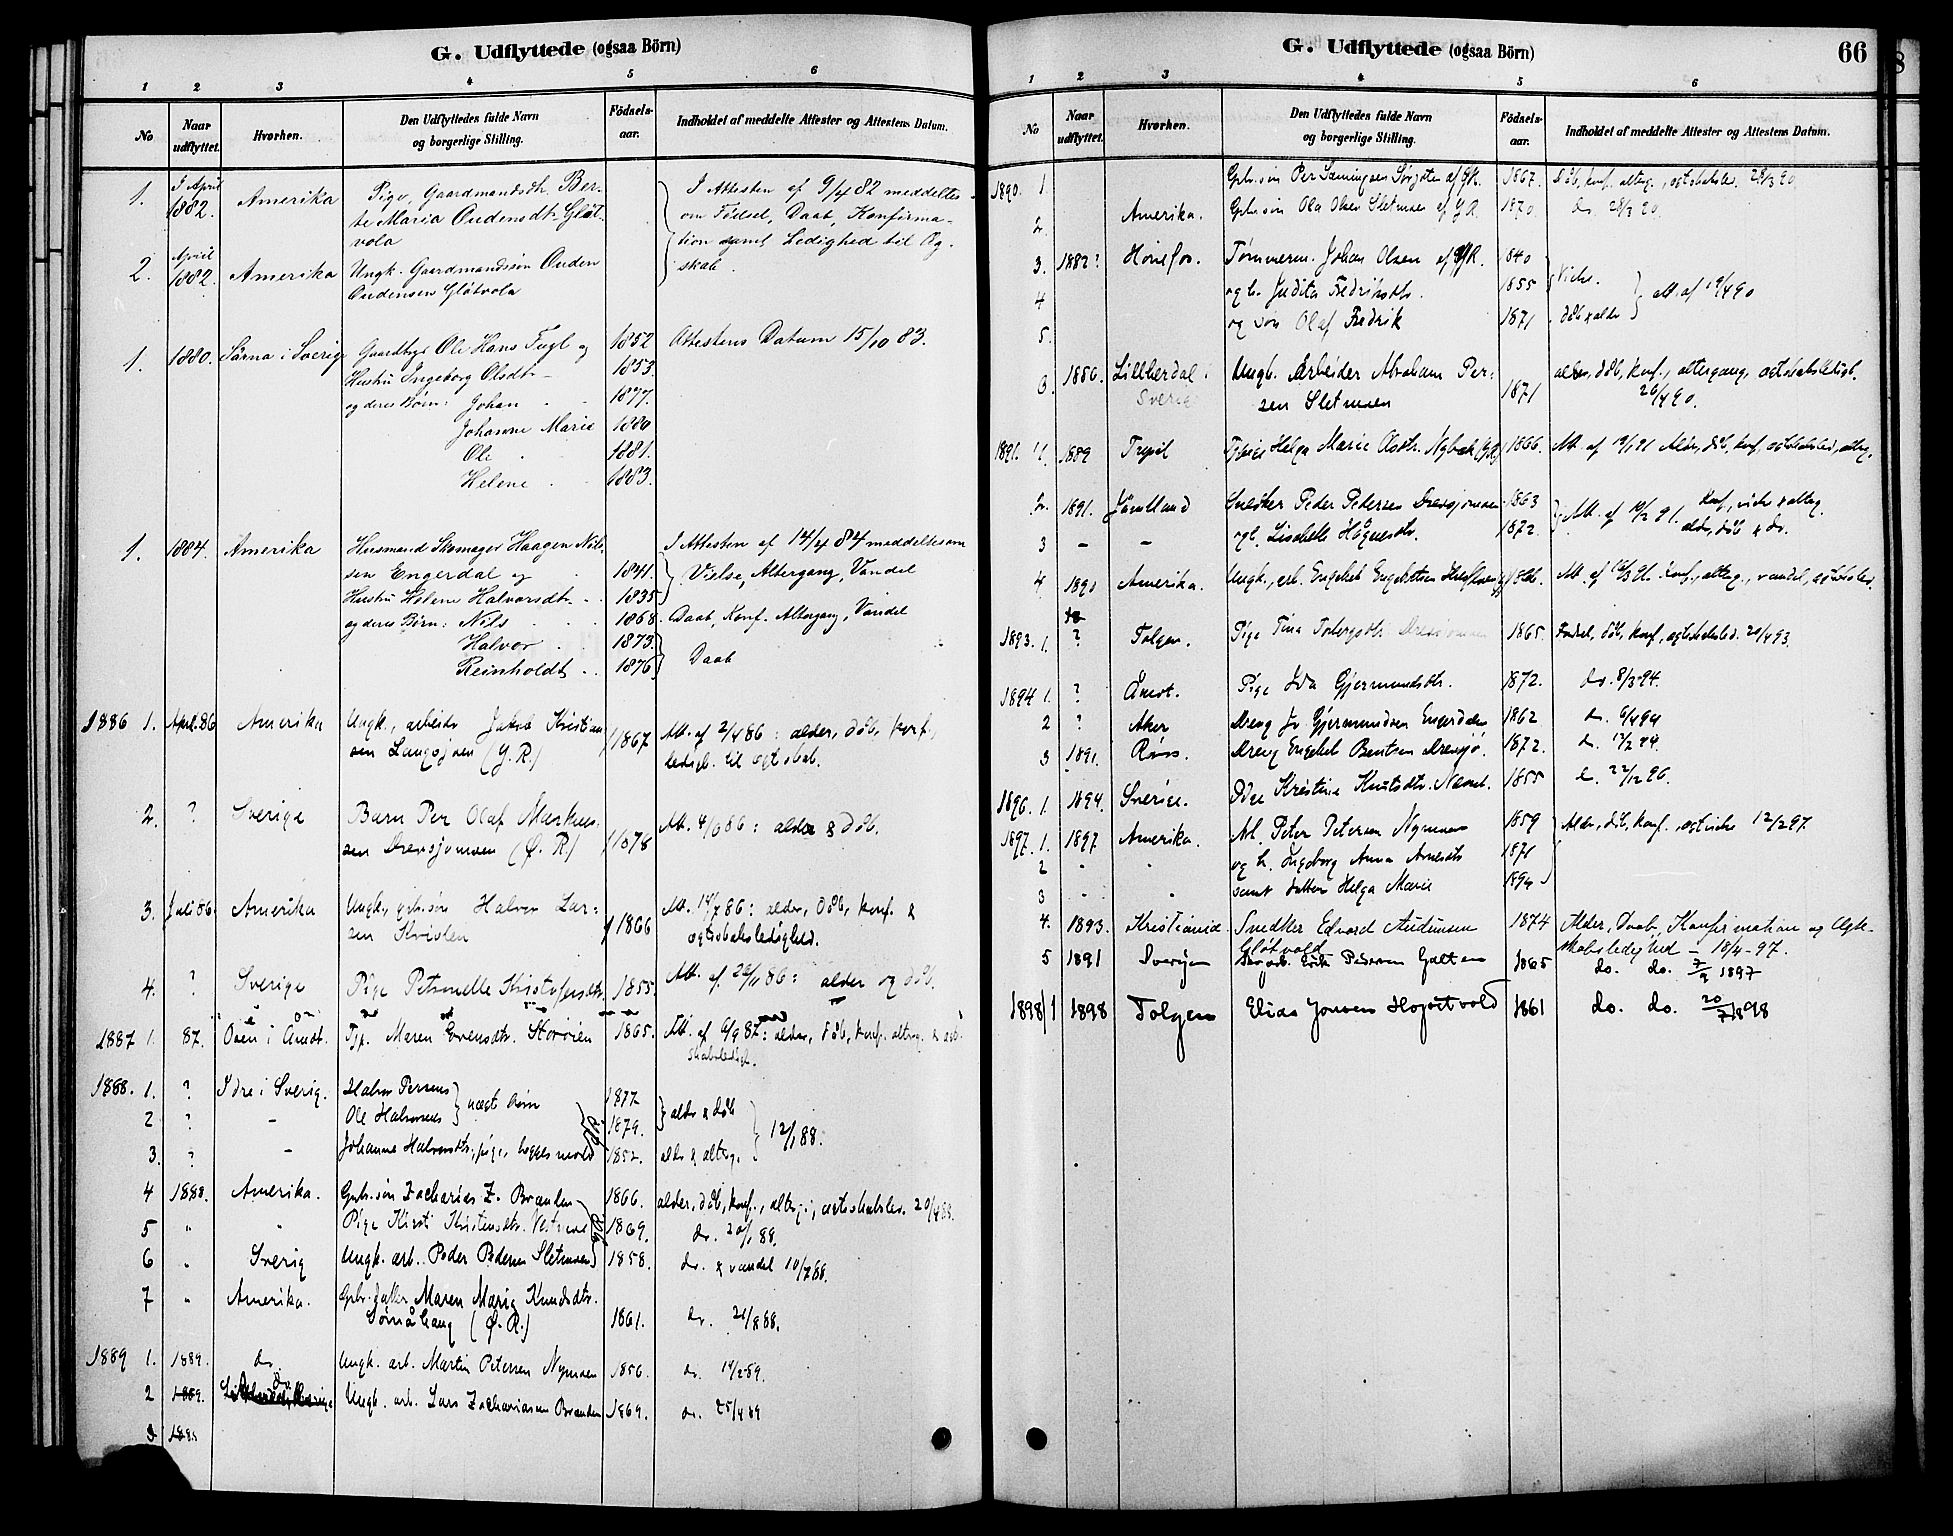 G. Udflyttede (ogsaa Börn)
1 2 3 4 5 6
No Naar udflyttet. Hvorhen. Den Udflyttedes fulde Navn og borgerlige Stilling. Födsels-aar. Indholdet af meddelte Attester og Attestens Datum.
1. I April 1882. Amerika Pige, Gaardmandsdtr. Ber-
te Maria Oudensdtr. Gløt-
vola
I Attesten af 9/4 82 meddeltes
om Födsel, Daab, Konfirma-
tion samt Ledighed til Æg-
skab.
2. April 1882. Amerika Ungk. Gaardmandssön Ouden
Oudensen Glötvola
1. 1880. Särna i Sverig Gaardbrgr. Ole Hans Fugl og 1852 Attestens Datum 15/10 83.
Hustru Ingeborg Olsdtr. 1853
og deres Börn: Johan 1877.
Johanne Marie 1880
Ole 1881.
Helene 1883.
1. 1884. Amerika Husmand Skomager Haagen Nil-
sen Engerdal og 1841.
Hustru Helene Halvorsdtr. 1835
I Attesten af 14/4 84 meddeltes om
Vielse, Altergang, Vandel
og deres Börn: Nils 1868. Daab, Konf. Altergang, Vandel
Halvor 1873
Reinholdt 1876 Daab
1886 1. April 86 Amerika Ungk., arbeider Jakob Kristian
sen Langsjøen (Y.R.) 1867 Att. af 2/4 86: alder, döb, konf.,
ledigh. til egteskab.
2. ? Sverige Barn Per Olaf Markus-
sen Drevsjomoen (Ø.R.) 1878 Att. 4/6 86: alder & döb.
3. Juli 86. Amerika Ungk., gbr.sön Halvor Lar-
sen Kvislen 1866 Att. 14/7 86: alder, döb, konf. &
egteskabsledighed.
4. ? Sverige Pige Petronelle Kristofersdtr. 1855. Att. af 26/11 86: alder og döb.
1887 1. 87. Osen i Åmot. Tjp. Maren Evensdtr. Storöien 1865. Att. af 6/9 87: alder, döb, konf. alterg. & egte-
skabsledigh.
1888. 1. ? Idre i Sverig. Halvor Persens 1877
2 ? - Ole Halvorsens uegte börn 1879. alder & döb 12/1 88.
3. ? - Johanne Halvorsdtr., pige, 1852. alder & alterg.
4 1888. Amerika. Gbr.sön Zacharias Z. Brænden 1866. alder, döb, konf., alterg., egteskabsled. 20/4 88.
5 " " Pige Kirsti Kristensdtr. 1869. do. 20/1 88.
6 " Sverig Ungk. arb. Peder Pedersen Sletmoen 1858. do. & vandel 10/7 88.
7 " Amerika. Gbr. datter Maren Marie Knudsdtr.
Sömåhaug (Ø.R.) 1861. do. 21/8 88.
1889 1. 1889. do. Ungk. arb. Martin Petersen Nymoen 1856. do. 14/2 89.
2 1889. do Ungk. arb. Lars Zachariasen Brænden 1869. do. 25/4 89
3
G. Udflyttede (ogsaa Börn) 66
1 2 3 4 5 6
No Naar udflyttet. Hvorhen. Den Udflyttedes fulde Navn og borgerlige Stilling. Födsels-aar. Indholdet af meddelte Attester og Attestens Datum.
1890. 1. Gbr.sön Per 1867. Döb, konf. alterg., egteskabsled. 28/3 90
2. Amerika. Gbr.sön Ola Olsen Sletmoen af Y.R. 1870 do. 28/3 90.
3. 1882? Hönefos. Tömmerm. Johan Olsen af Y.R. 1840
4 og h. Judita Fredriksdtr. 1855 Viede.
5. og sön Olaf Fredrik 1871 döb & alder att. af 19/4 90
6. 1886. Lillherdal i
Sverig Ungk. Arbeider Abraham Per-
sen Sletmoen 1871 alder, döb, konf., altergang, egteskabsledigh.
26/4 90.
1891. 1. 1889 Trysil Tjpige Helga Marie Olsdtr. Nybak (Y.R) 1866. Att. af 19/1 91 Alder, döb, konf, egteskabsled, alterg.
2. 1891. Jämtland Snedker Peder Pedersen Drevsjomoen 1863
3 - - og h. Lisabeth Hågensdtr. 1872. Att. af 19/2 91. konf., viede & alterg.
alder, döb & do.
4 1890 Amerika. Ungk., arb. Engebret Engebretsen Att. af 12/3 91. Konf., alterg., vandel, egteskabsled.
1893. 1. ? Tolgen. Pige Tina Torbergsdtr. Drevsjomoen 1865. Födsel, döb, konf, egteskabsled. 20/4 93.
1894 1. ? Åmot. Pige Ida Gjermundsdtr. 1872. do. 8/3 94.
2 ? Aker Dreng Jo Gjermundsen Engerdalen 1862 do. 6/4 94
3 1891. Röros. Dreng Engebret Bentsen Drevsjö. 1872. do. 12/2 94.
1896. 1. 1894. Sverige. Pige Kristine Knutsdtr. 1855 do. 22/12 96.
1897. 1. 1897 Amerika. Arb. Peter Petersen Nymoen 1859 Alder, döb, konf., egteviede 12/2 97.
2 " " og h. Ingeborg Anna Arnesdtr 1871
3 " " samt datter Helga Marie 1894
4. 1893. Kristiania Snedker Edvard Audunsen
Glötvold 1874 Alder, Daab, Konfirmation og Egte-
skabsledighed - 18/4 - 97.
5 1891 Sverige Erik Pedersen Galten 1865 do. do. 7/9 1897
1898 1 1898 Tolgen Elias Jonsen Hopstvold 1861 do. do. 20/7 1898